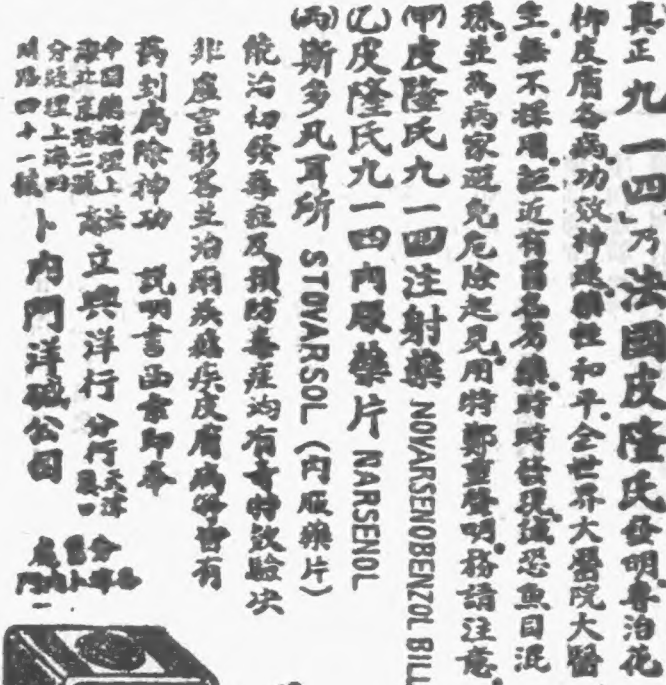 真正九一四」乃法國皮隆氏發明專治花
柳皮膚各病功效神速藥性和平全世界大醫院大醫
生無不採用近有冒名劣藥時時發現誠恐魚目混
珠並為病家避免危險起見用特鄭重聲明務請注意
(甲)皮隆氏九一四注射藥 NOVARSENOBENZOL BILL
(乙)皮隆氏九一四內服藥片 NARSENOL
(丙)斯多凡耳所 STOVARSOL (內服藥片)
能治初發毒症及預防毒症均有奇特效驗决
非虛言形容並治痢疾瘧疾皮膚病等皆有
藥到病除神功 說明書函索即奉
中國總經理上海
二號
立興洋行 分行天津
漢口
分經理上海四川路四十一號
卜內門洋碱公司